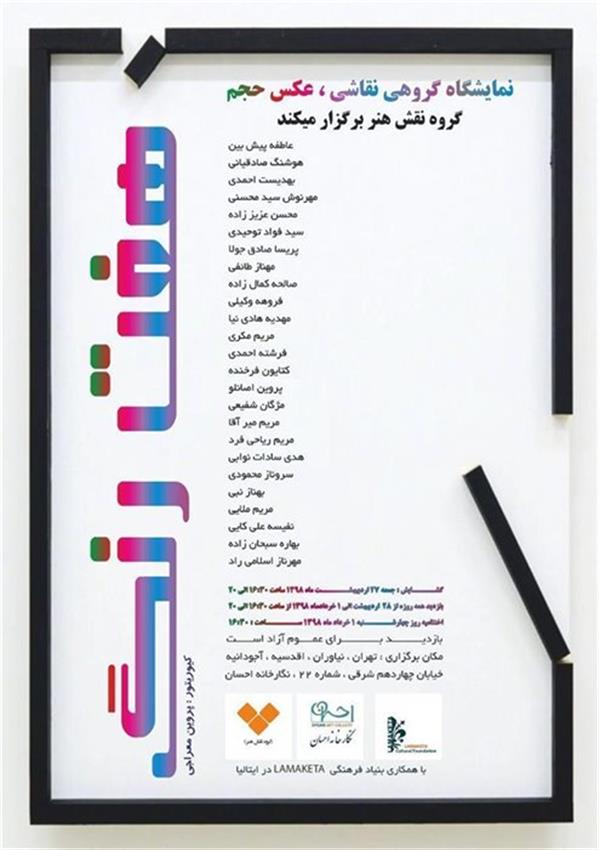 نمایشگاه گروهی نقاشی ، عکس حجم
گروه نقش هنر برگزار میکند
هفت رنگ
کیوریتور : پروین معراجی
عاطفه پیش بین
هوشنگ صادقیانی
بهدیست احمدی
مهرنوش سید محسنی
محسن عزیز زاده
سید فواد توحیدی
پریسا صادق جولا
مهناز طائفی
صالحه کمال زاده
فروهه وکیلی
مهدیه هادی نیا
مریم مکری
فرشته احمدی
کتایون فرخنده
پروین اصانلو
مژگان شفیعی
مریم میر آقا
مریم ریاحی فرد
هدی سادات نوابی
سروناز محمودی
بهناز نبی
مریم ملایی
نفیسه علی کایی
بهاره سبحان زاده
مهرناز اسلامی راد
گشایش : جمعه ۲۷ اردیبهشت ماه ۱۳۹۸ ساعت ۱۶:۳۰ الی ۲۰
بازدید همه روزه از ۲۸ اردیبهشت الی ۱ خردادماه ۱۳۹۸ از ساعت ۱۶:۳۰ الی ۲۰
اختتامیه روز چهارشنبه ۱ خرداد ماه ۱۳۹۸ ساعت : ۱۶:۳۰
بازدید برای عموم آزاد است
مکان برگزاری : تهران ، نیاوران ، اقدسیه ، آجودانیه
خیابان چهاردهم شرقی ، شماره ۲۲ ، نگارخانه احسان
(گروه نقش هنر)
احسان
EHSAN ART GALLERY
نگارخانه احسان
LAMAKETA
LAMAKETA
Cultural Foundation
با همکاری بنیاد فرهنگی LAMAKETA در ایتالیا